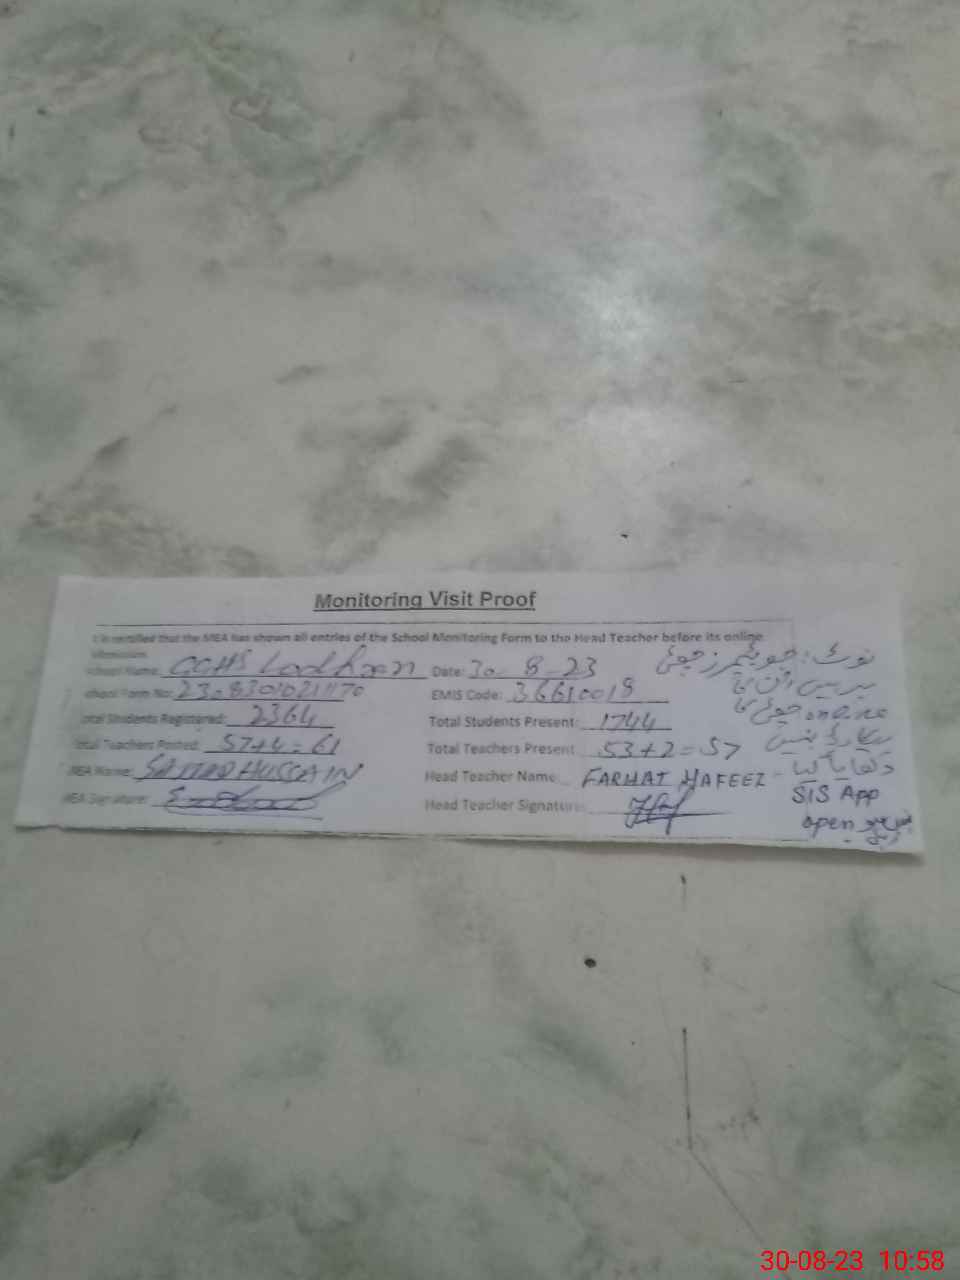 Monitoring Visit Proof
It is certified that the MEA has shown all entries of the School Monitoring Form to the Head Teacher before its online
submission.
School Name: GGHS Lodhran Date: 30-8-23
School Form No: 23-8301021170 EMIS Code: 36610018
Total Students Registered: 2364 Total Students Present: 1744
Total Teachers Posted: 57+4=61 Total Teachers Present 53+2=57
MEA Name: SAJJAD HUSSAIN Head Teacher Name FARHAT HAFEEZ
MEA Signature: Head Teacher Signature:
نوٹ: جو ٹیچرز چھٹی
پر ہیں ان کا
online چھٹی کا
ریکارڈ نہیں
دکھایا گیا
SIS App
open نہیں ہو رہی
30-08-23 10:58